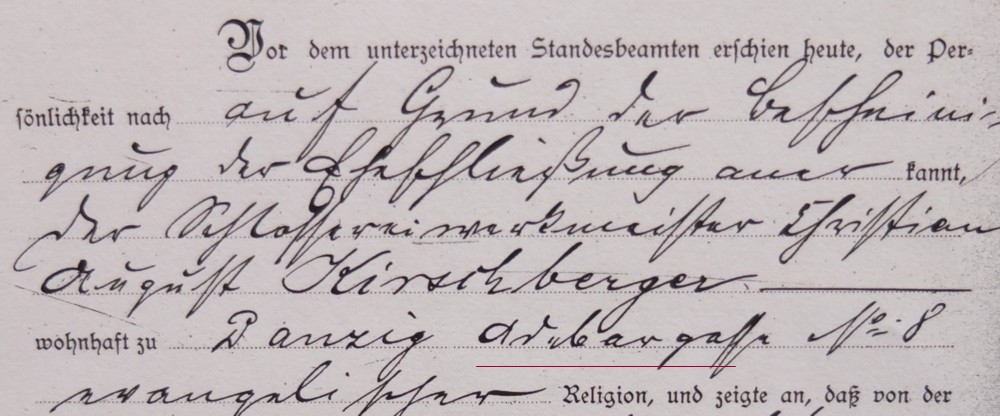 Vor dem unterzeichneten Standesbeamten erschien heute, der Per-
sönlichkeit nach auf Grund der Bescheini-
gung der Eheschließung aner kannt,
der Schlossereiwerkmeister Christian
August Kirschberger
wohnhaft zu Danzig Adebargasse No. 8
evangelischer Religion, und zeigte an, daß von der